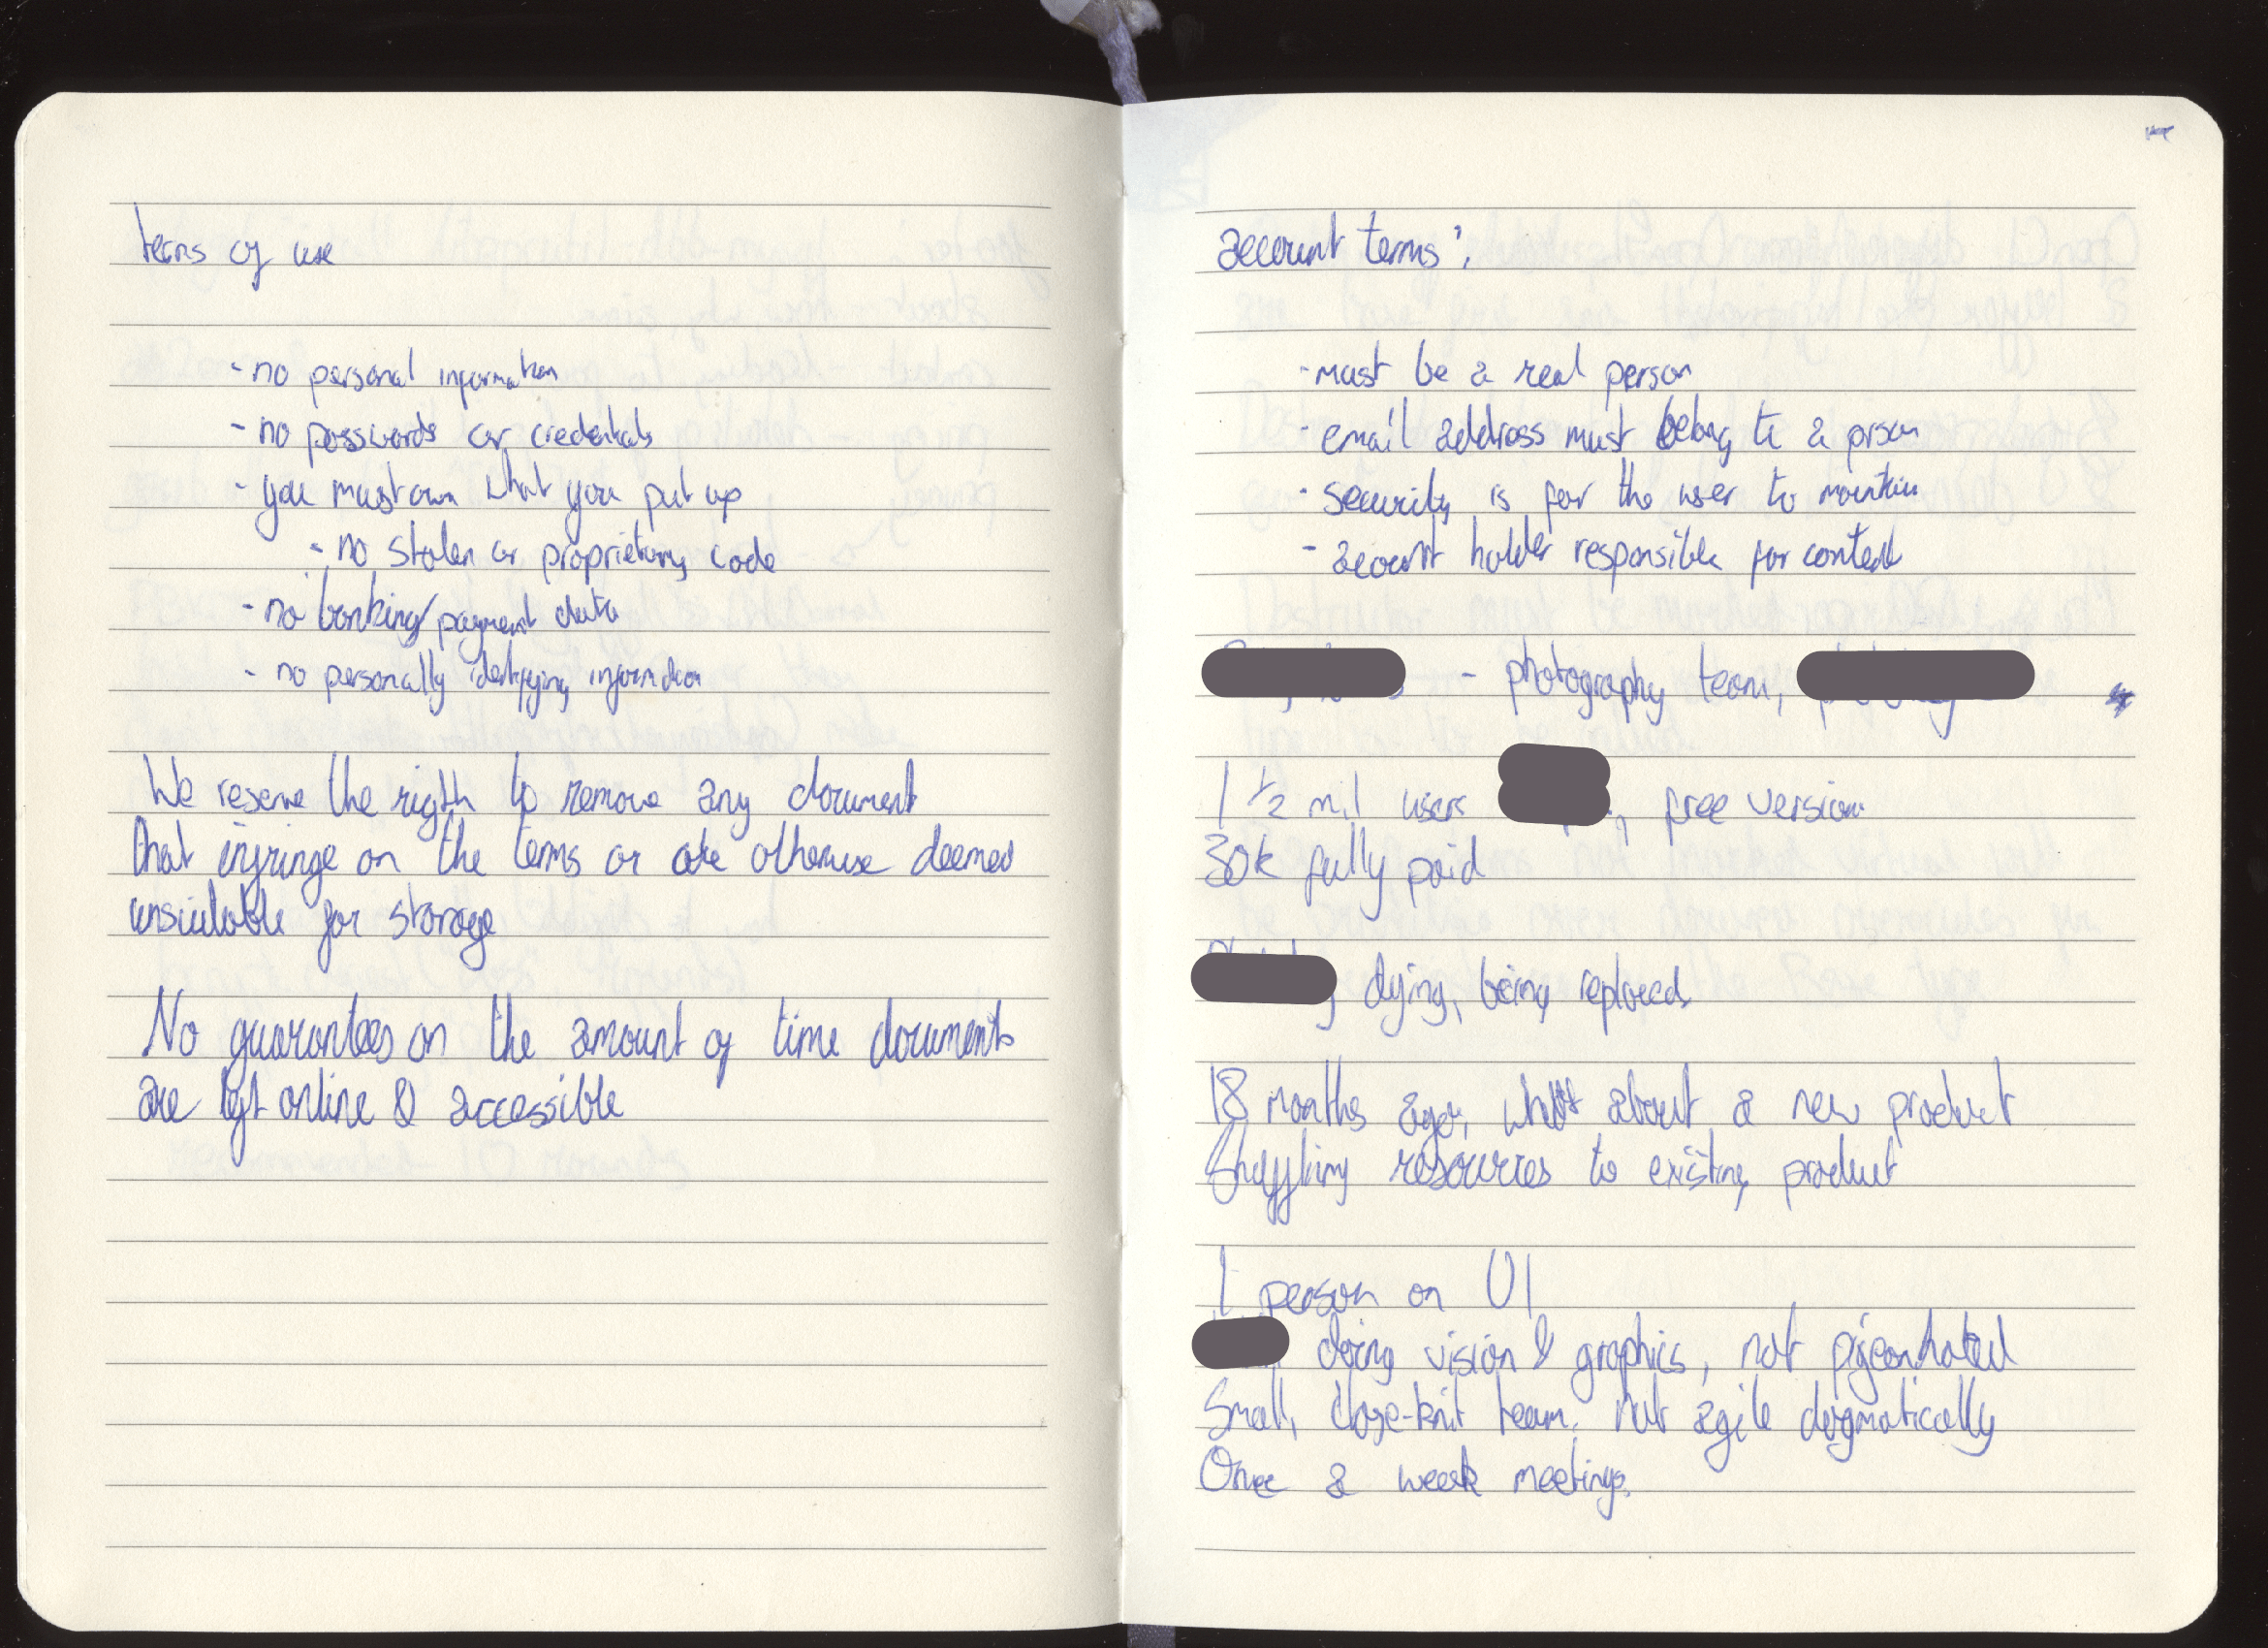 terms of use
- no personal information
- no passwords or credentials
- you must own what you put up
- no stolen or proprietary code
- no banking/payment data
- no personally identifying information
We reserve the rigth to remove any document
that infringe on the terms or are otherwise deemed
unsuitable for storage
No guarantees on the amount of time documents
are left online & accessible
account terms:
- must be a real person
- email address must belong to a prson
- security is for the user to maintain
- account holder responsible for content
- photography team,
1 1/2 mil users , free version
30k fully paid
dying, being replaced
18 months ago, what about a new product
Shuffling resources to existing product
1 person on UI
doing vision & graphics, not pigeonholed
Small, close-knit team. Not agile dogmatically
Once a week meetings.